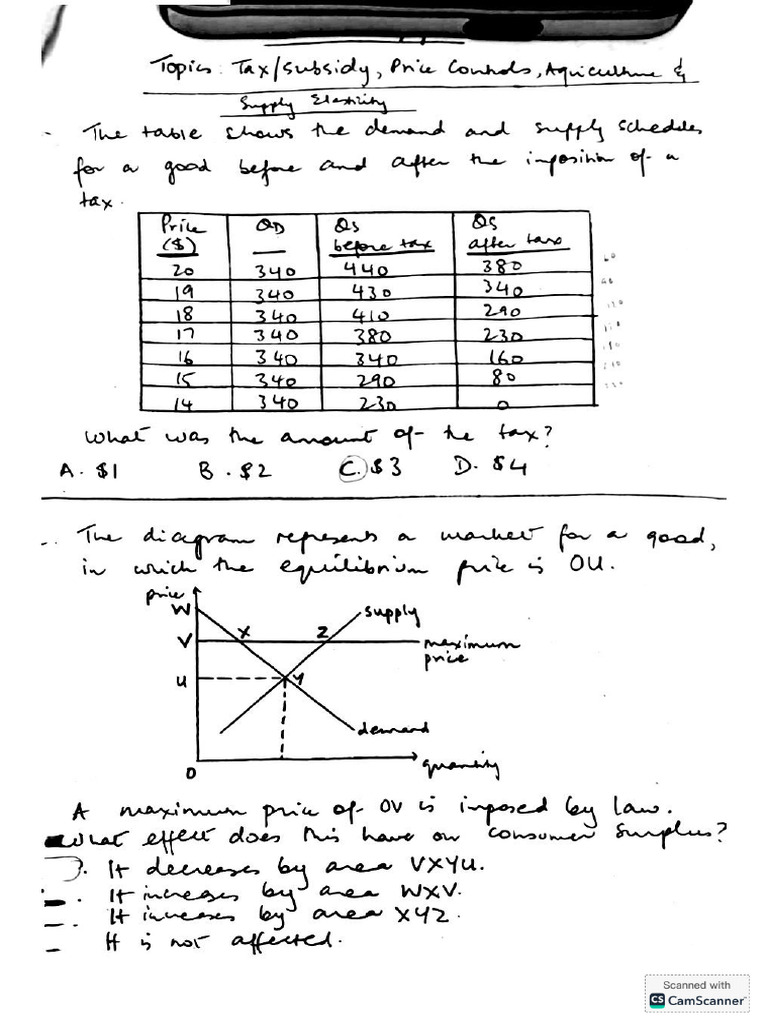 Topics: Tax/subsidy, Price Controls, Agriculture &
Supply Elasticity
The table shows the demand and supply schedules
for a good before and after the imposition of a
tax.
Price ($) QD QS before tax QS after tax
20 340 440 380
19 340 430 340
18 340 410 290
17 340 380 230
16 340 340 160
15 340 290 80
14 340 230 0
What was the amount of the tax?
A. $1 B. $2 C. $3 D. $4
The diagram represents a market for a good,
in which the equilibrium price is OU.
price
W
supply
V X Z maximum price
U Y
demand
O quantity
A maximum price of OV is imposed by law.
What effect does this have on consumer surplus?
. It decreases by area VXYU.
. It increases by area WXV.
. It increases by area XYZ.
It is not affected.
Scanned with
CS CamScanner